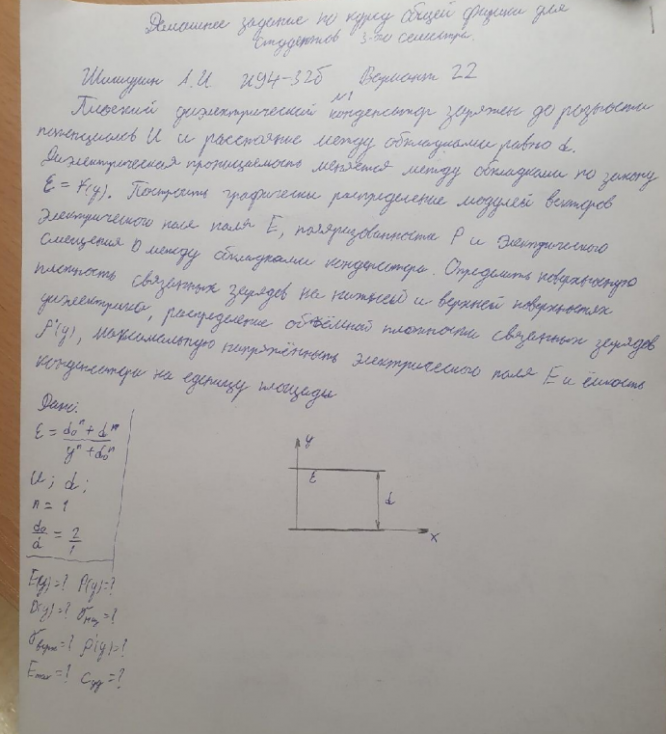 Домашнее задание по курсу общей физики для
студентов 3-го семестра.
А.И. Э94-32б Вариант 22
№1
Плоский диэлектрический конденсатор заряжен до разности
потенциалов U и расстояние между обкладками равно d.
Диэлектрическая проницаемость меняется между обкладками по закону
ε = f(y). Построить графически распределение модулей векторов
электрического поля поля E, поляризованности P и электрического
смещения D между обкладками конденсатора. Определить поверхностную
плотность связанных зарядов на нижней и верхней поверхностях
диэлектрика, распределение объёмной плотности связанных зарядов
ρ'(y), максимальную напряжённость электрического поля E и ёмкость
конденсатора на еденицу площади
Дано:
ε = (d₀ⁿ + dⁿ)/(yⁿ + d₀ⁿ)
U; d;
n = 1
d₀/d = 2/1
E(y)=? P(y)=?
D(y)=? σ =?
σ =? ρ'(y)=?
E =? C =?
y
ε
d
x